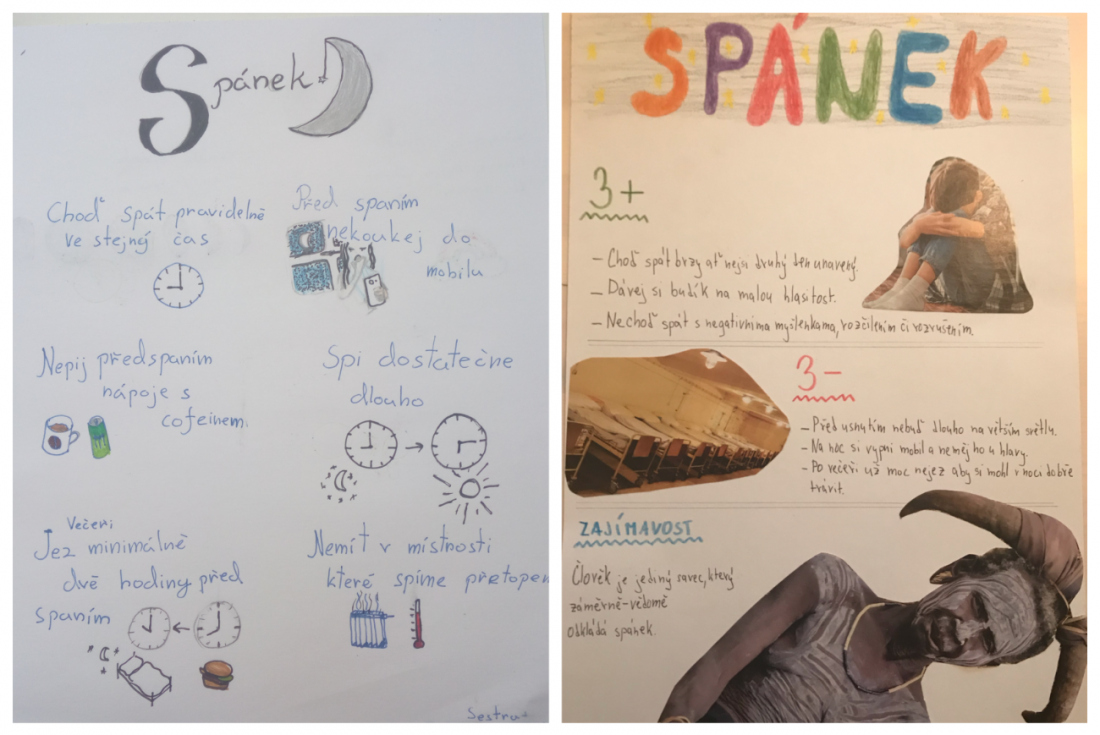 Spánek
Choď spát pravidelně
ve stejný čas
Před spaním
nekoukej do
mobilu
Nepij předspaním
nápoje s
cofeinem.
Spi dostatečne
dlouho
Večeři
Jez minimálně
dvě hodiny před
spaním
Nemít v místnosti
které spíme přetopen
SPÁNEK
3+
- Choď spát brzy ať nejsi druhý den unavený.
- Dávej si budík na malou hlasitost.
- Nechoď spát s negativníma myšlenkama, rozčílením či rozrušením.
3-
- Před usnutím nebuď dlouho na větším světlu.
- Na noc si vypni mobil a neměj ho u hlavy.
- Po večeři už moc nejez aby si mohl v noci dobře
trávit.
ZAJÍMAVOST
Člověk je jediný savec, který
záměrně-vědomě
odkládá spánek.